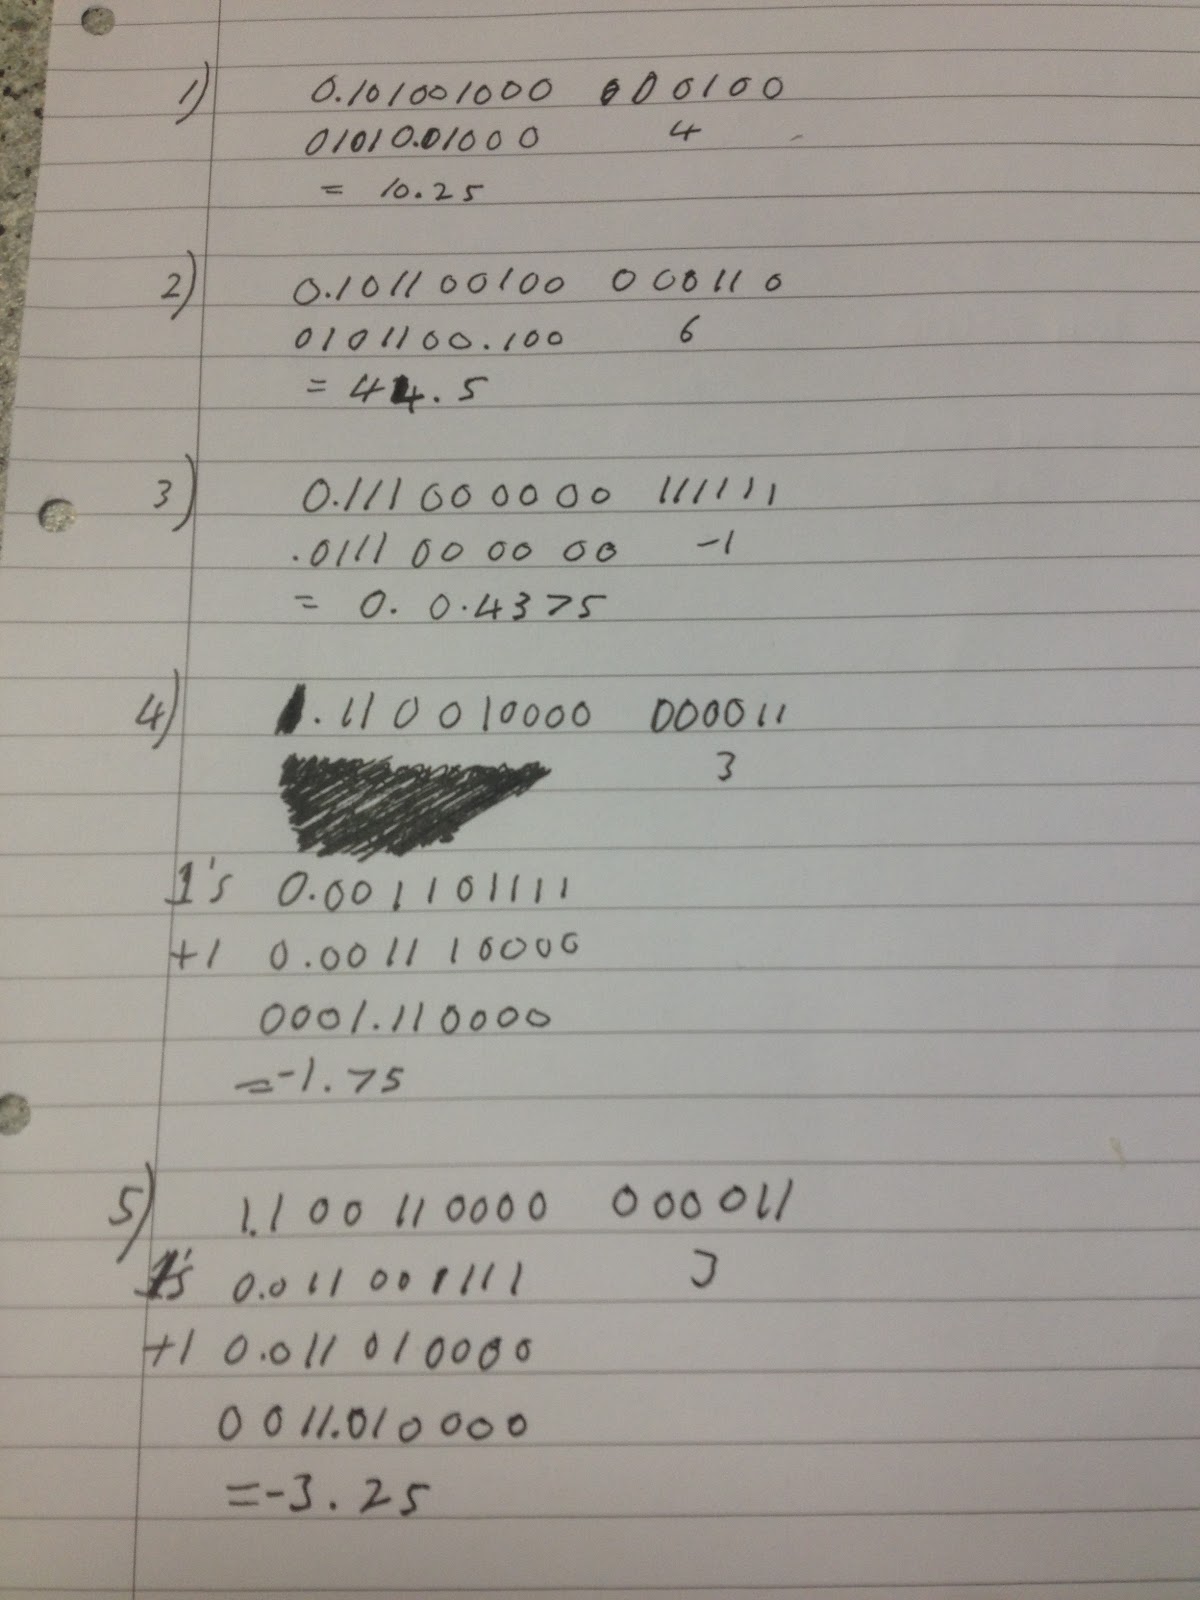 1) 0.101001000 000100
01010.01000 4
= 10.25
2) 0.101100100 000110
0101100.100 6
= 44.5
3) 0.111000000 111111
.0111000000 -1
= 0. 0.4375
4) 1.110010000 000011
3
1's 0.001101111
+1 0.001110000
0001.110000
=-1.75
5) 1.100110000 000011
3
1's 0.011001111
+1 0.011010000
0011.010000
=-3.25